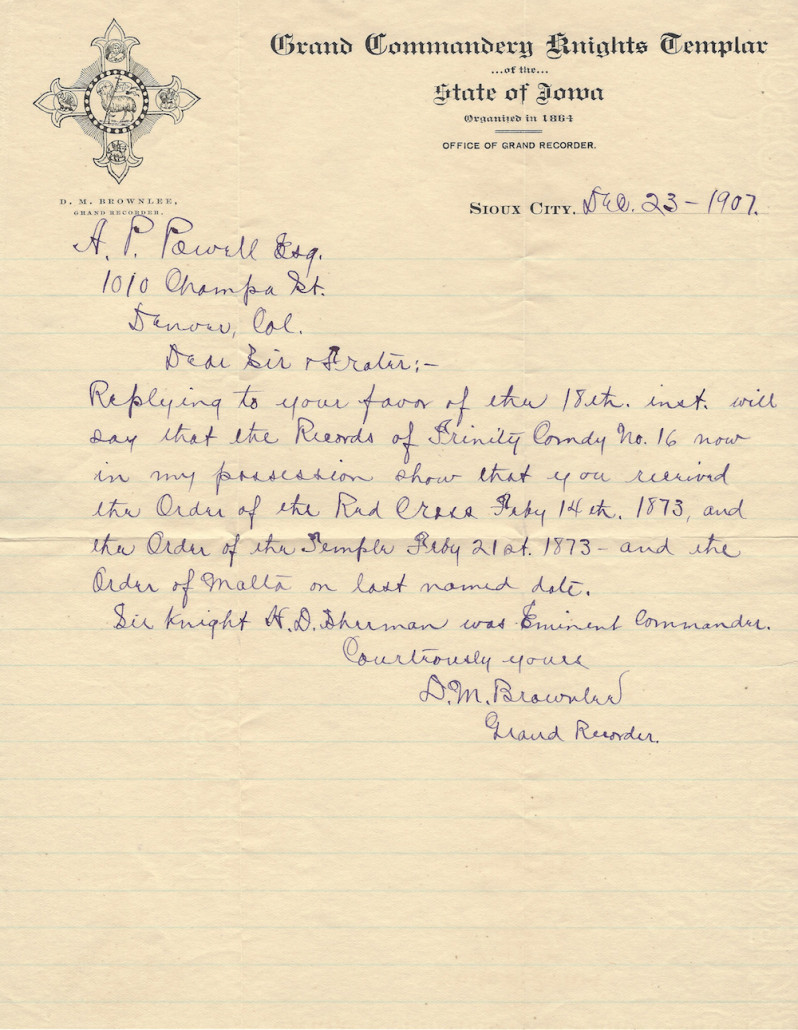 Grand Commandery Knights Templar
...of the...
State of Iowa
Organized in 1864
OFFICE OF GRAND RECORDER.
D. M. BROWNLEE,
GRAND RECORDER.
SIOUX CITY. Dec. 23 - 1907.
A. P. Powell Esq.
1010 Champa St.
Denver, Col.
Dear Sir & Frater:-
Replying to your favor of the 18th. inst. will
say that the Records of Trinity Comdy No. 16 now
in my possession show that you received
the Order of the Red Cross Feby 14th. 1873, and
the Order of the Temple Feby 21st. 1873 - and the
Order of Malta on last named date.
Sir Knight H. D. Sherman was Eminent Commander.
Courteously yours
D. M. Brownlee
Grand Recorder.